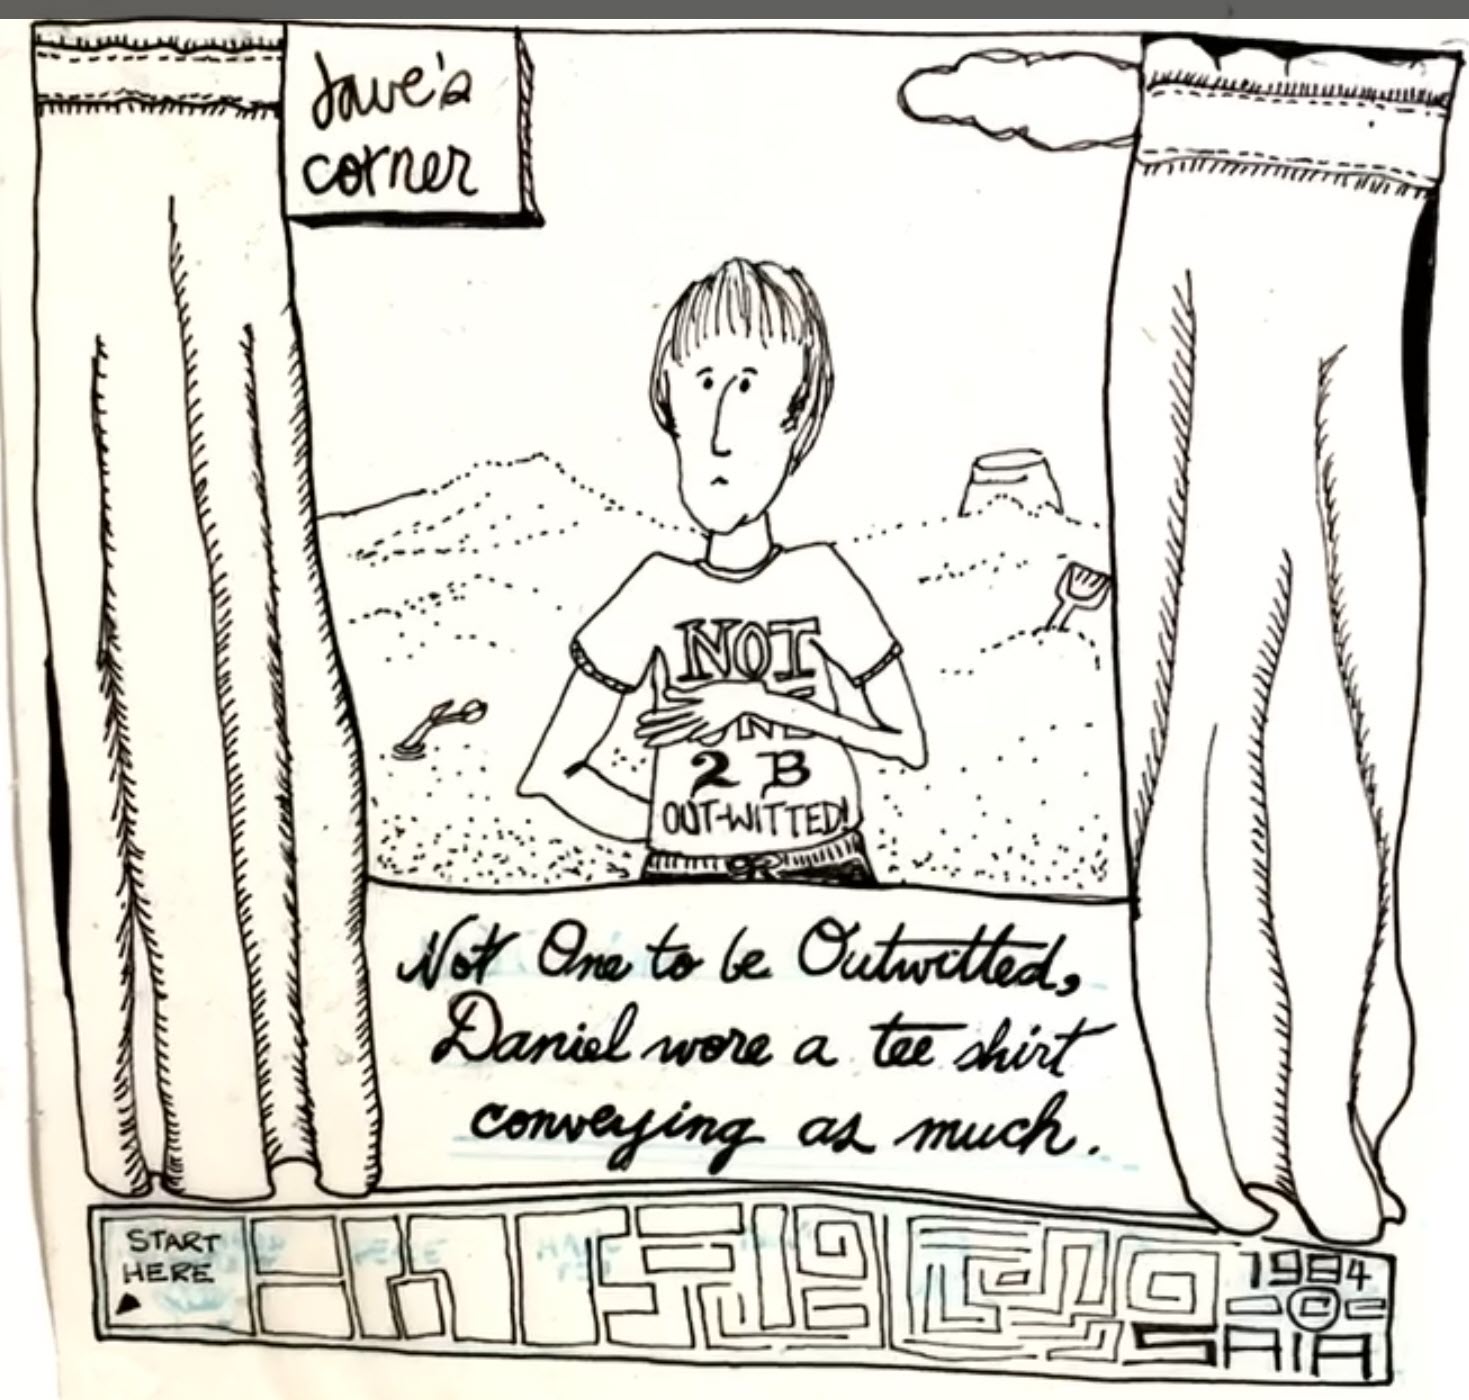 Dave's
corner
NOT
ONE
2 B
OUT-WITTED!
Not One to be Outwitted,
Daniel wore a tee shirt
conveying as much.
START
HERE
1984
©
SAIA